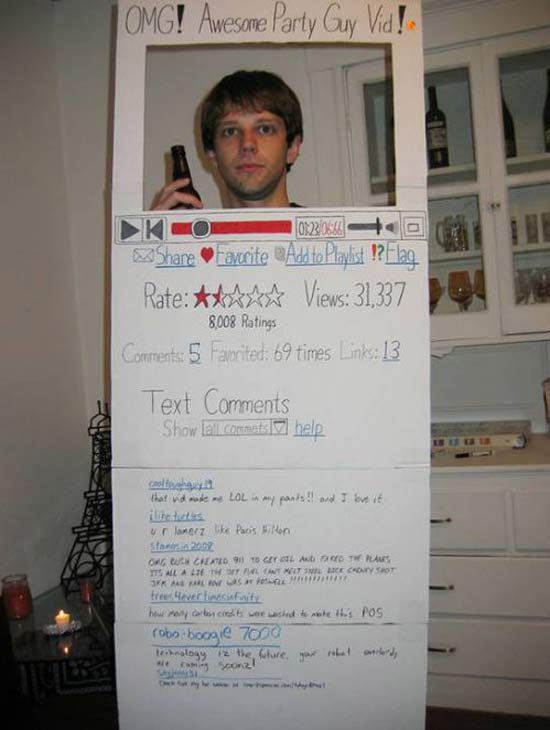 OMG! Awesome Party Guy Vid!
01:23/06:66
Share Favorite Add to Playlist !? Flag
Rate: Views: 31,337
8,008 Ratings
Comments: 5 Favorited: 69 times Links: 13
Text Comments
Show all commets help
cooltoughguy19
that vid made me LOL in my pants!! and I love it
ilike turtles
u r lamerz like Paris Hilton
stamosin2008
OMG BUSH CREATED 911 TO GET OIL AND FAKED THE PLANES
ITS ALL A LIE THE JET FUEL CANT MELT STEEL DICK CHENEY SHOT
JFK AND KARL ROVE WAS AT ROSWELL !!!!!!!!!!!!!
trees4evertimesinfinity
how many carbon credits were wasted to make this POS
robo-boogie 7000
technology iz the future. your robot overlords
are coming soonz!